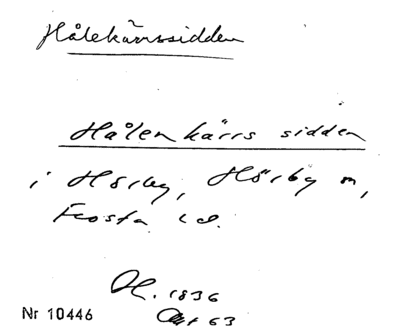 Hålekärrssidden
Hålen kärrs sidden
i Hörby, Hörby m,
Frosta
1836
63
Nr 10446